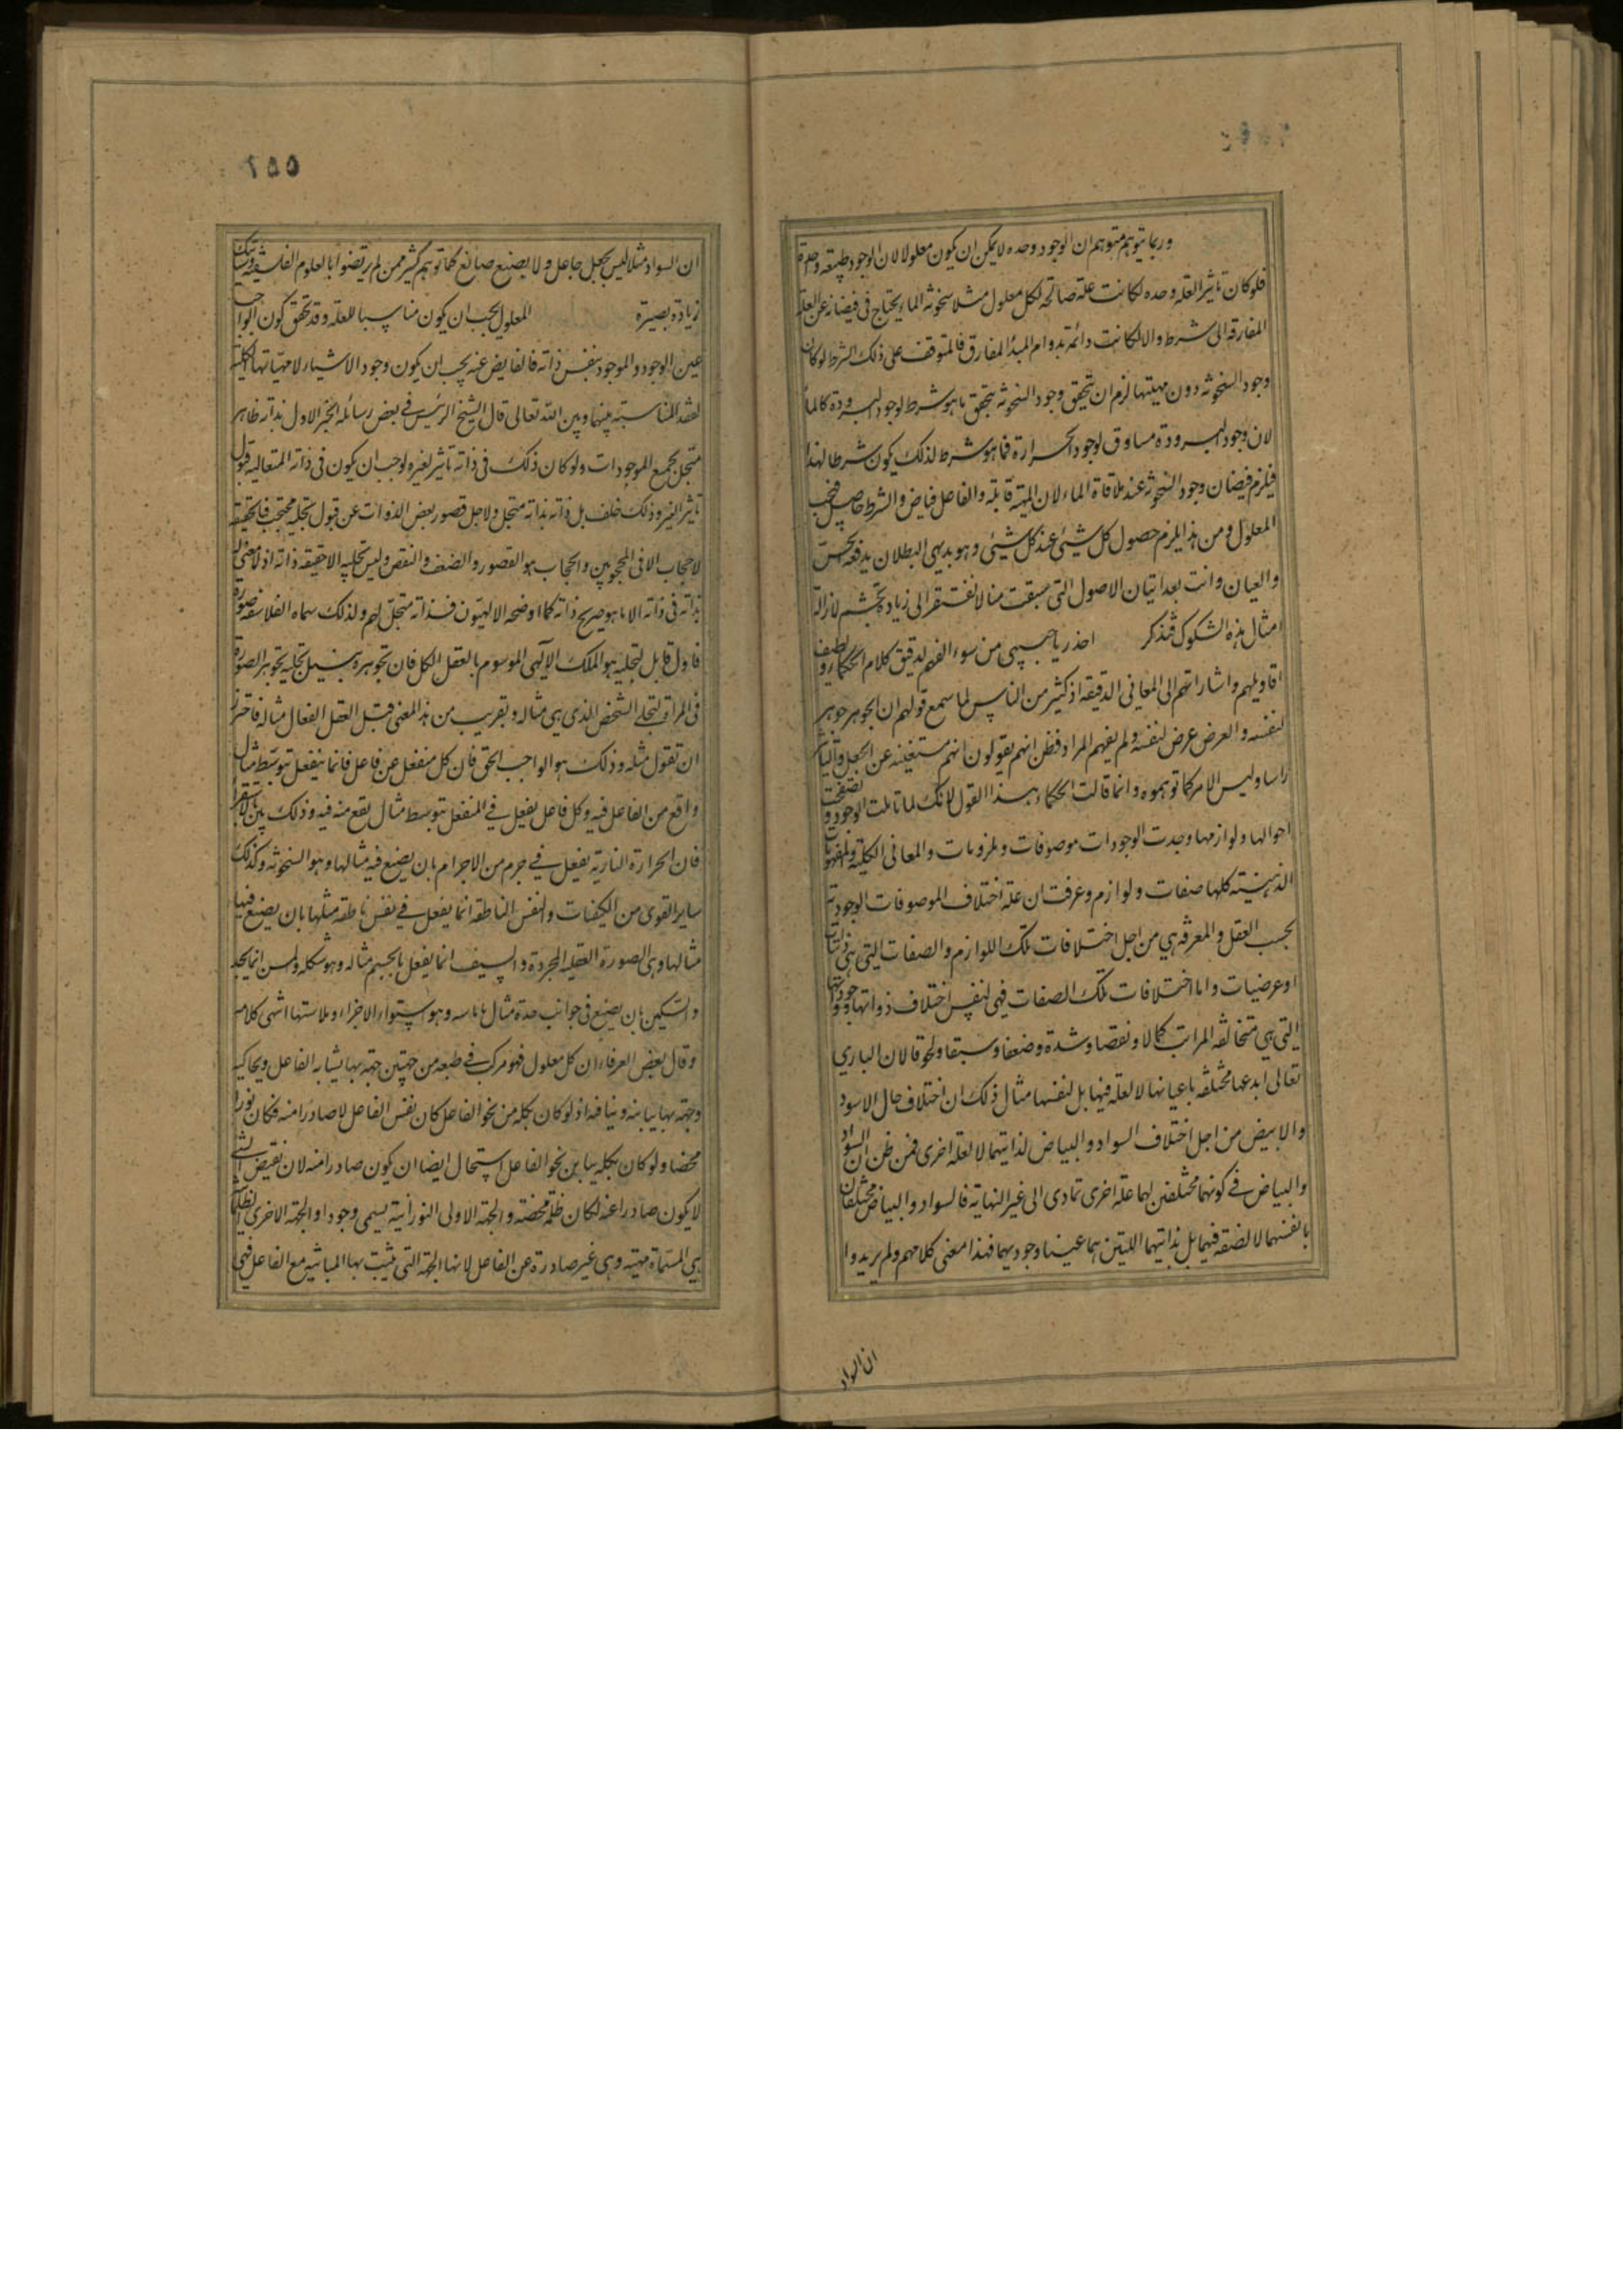 وربما يتوهم متوهم ان الوجود وحده لا يمكن ان يكون معلولا لان الوجود طبيعة واحدة
فلو كان تاثير العلة وحده لكانت علة صالحة لكل معلول مثلا سخونة الماء يحتاج في فيضانه عن العلة
المفارقة الى شرط والا لكانت دائمة بدوام المبدأ المفارق فالمتوقف على ذلك الشرط لو كان
وجود السخونة دون مهيتها لزم ان يتحقق وجود السخونة بتحقق ما هو شرط لوجود البرودة كالماء
لان وجود البرودة مساوق لوجود الحرارة فما هو شرط لذلك يكون شرطا لهذا
فيلزم فيضان وجود السخونة عند ملاقاة الماء لان المهية قابلة والفاعل فياض والشرط حاصل فيجب
المعلول ومن هذا يلزم حصول كل شيئ عند كل شيئ وهو بديهى البطلان يدفعه الحس
والعيان وانت بعد اتيان الاصول التى سبقت منا لا تفتقر الى زيادة تجشم لازالة
امثال هذه الشكوك فتذكر احذر يا حبيبى من سوء الفهم لدقيق كلام الحكماء ولطيف
اقاويلهم واشاراتهم الى المعانى الدقيقة اذ كثير من الناس لما سمع قولهم ان الجوهر جوهر
لنفسه والعرض عرض لنفسه ولم يفهم المراد فظن انهم يقولون انهم مستغنية عن الجعل والتاثير
راسا وليس الامر كما توهموه وانما قالت الحكماء بهذا القول لانك لما تاملت الوجود وتصفحت
احوالها ولوازمها وجدت الوجودات موصوفات وملزومات والمعانى الكلية والمفهومات
الذهنية كلها صفات ولوازم وعرفت ان علة اختلاف الموصوفات الوجودية
بحسب العقل والمعرفة هي من اجل اختلافات تلك اللوازم والصفات التى هي ذاتيات
او عرضيات واما اختلافات تلك الصفات فهى لنفس اختلاف ذواتها ووجوداتها
التى هي متخالفة المراتب كمالا ونقصا وشدة وضعفا وسبقا ولحوقا لان البارى
تعالى ابدعها مختلفة باعيانها لا لعلة فيها بل لنفسها مثال ذلك ان اختلاف حال الاسود
والابيض من اجل اختلاف السواد والبياض لذاتيهما لا لعلة اخرى فمن ظن ان السواد
والبياض في كونهما مختلفين لهما علة اخرى تمادى الى غير النهاية فالسواد والبياض مختلفان
بانفسهما لا لصفة فيهما بل بذاتيهما اللتين هما عينا وجوديهما فهذا معنى كلامهم ولم يريدوا
ان السواد
٢٥٥
ان السواد مثلا ليس بجعل جاعل ولا بصنع صانع كما توهم كثير ممن لم يرتضوا بالعلوم الفلسفية
زيادة بصيرة المعلول يجب ان يكون مناسبا للعلة وقد تحقق كون الواجب
عين الوجود والموجود بنفس ذاته فالفايض عنه يجب ان يكون وجود الاشياء لا مهياتها الكلية
لفقد المناسبة بينها وبين الله تعالى قال الشيخ الرئيس في بعض رسائله الخير الاول بذاته ظاهر
متجل لجميع الموجودات ولو كان ذلك في ذاته تاثير لغيره لوجب ان يكون في ذاته المتعالية قبول
تاثير الغير وذلك خلف بل ذاته بذاته متجل ولاجل قصور بعض الذوات عن قبول تجليه محتجب فبالحقيقة
لا حجاب الا في المحجوبين والحجاب هو القصور والضعف والنقص وليس تجليه الا حقيقة ذاته اذ لا معنى له
بذاته في ذاته الا ما هو صريح ذاته كما اوضحه الالهيون فذاته متجل لهم ولذلك سماه الفلاسفة صورة
فاول قابل لتجليه هو الملك الالهى الموسوم بالعقل الكل فان تجوهره بنيل تجليه تجوهر الصورة
في المراة لتجلى الشخص الذى هي مثاله وبقريب من هذا المعنى قيل العقل الفعال مثاله فاحترز
ان تقول مثله وذلك هو الواجب الحق فان كل منفعل عن فاعل فانما ينفعل بتوسط مثال
واقع من الفاعل فيه وكل فاعل يفعل في المنفعل بتوسط مثال يقع منه فيه وذلك بين بالاستقراء
فان الحرارة النارية يفعل في جرم من الاجرام بان يضع فيه مثالها وهو السخونة وكذلك
ساير القوى من الكيفيات والنفس الناطقة انما يفعل في نفس ناطقة مثلها بان يضع فيها
مثالها وهى الصورة العقلية المجردة والسيف انما يفعل بالجسم مثاله وهو شكله والمسن انما يحد
والسكين بان يضع في جوانب حده مثال ما ماسه وهو استواء الاجزاء وملاستها انتهى كلامه
وقال بعض العرفاء ان كل معلول فهو مركب في طبعه من جهتين جهة بها يشابه الفاعل ويحاكيه
وجهة بها يباينه وينافيه اذ لو كان بكله من نحو الفاعل كان نفس الفاعل لا صادرا منه فكان نورا
محضا ولو كان بكله يباين نحو الفاعل استحال ايضا ان يكون صادرا منه لان نقيض الشيئ
لا يكون صادرا عنه لكان ظلمة محضة والجهة الاولى النورانية يسمى وجودا والجهة الاخرى الظلمانية
هي المسماة مهية وهى غير صادرة عن الفاعل لانها الجهة التى يثبت بها المباينة مع الفاعل فهى